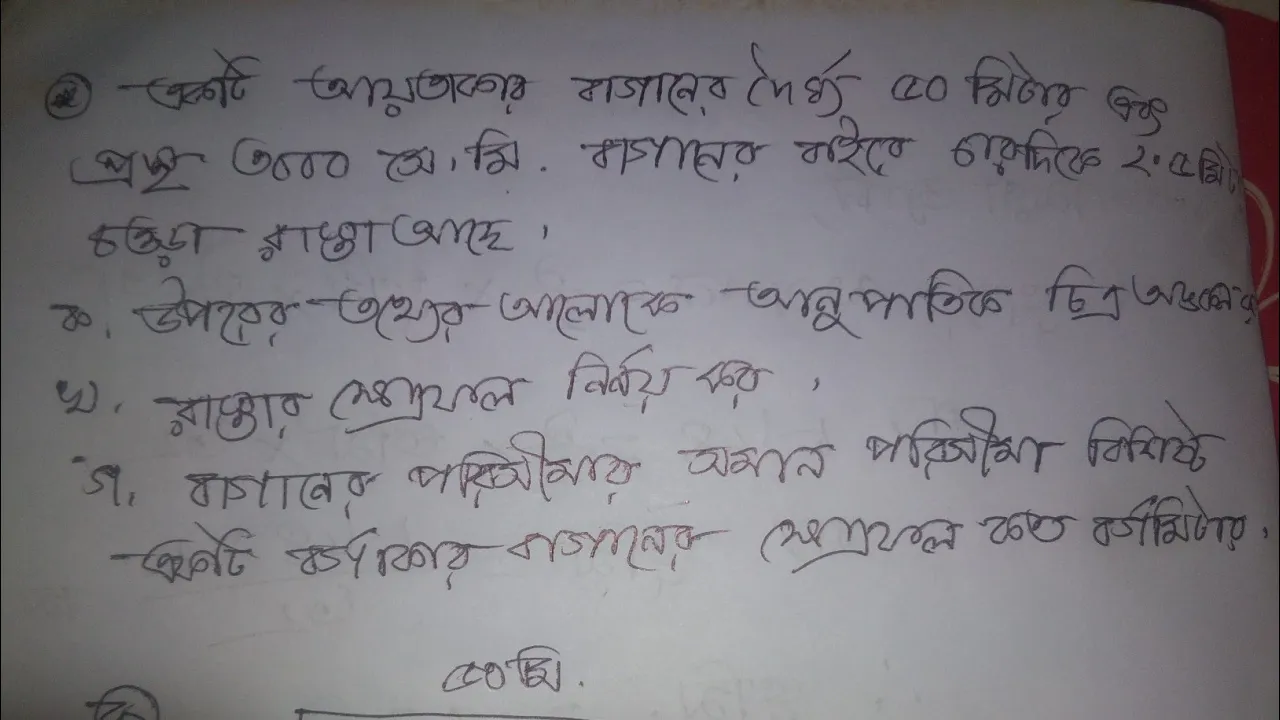 একটি আয়তাকার বাগানের দৈর্ঘ্য ৫০ মিটার এবং
প্রস্থ ৩০০০ সে.মি. বাগানের বাইরে চারদিকে ২.৫ মিটা
চওড়া রাস্তা আছে।
ক. উপরের তথ্যের আলোকে আনুপাতিক চিত্র অঙ্কন কর
খ. রাস্তার ক্ষেত্রফল নির্নয় কর।
গ. বাগানের পরিসীমার সমান পরিসীমা বিশিষ্ট
একটি বর্গাকার বাগানের ক্ষেত্রফল কত বর্গমিটার।
৫০ মি.